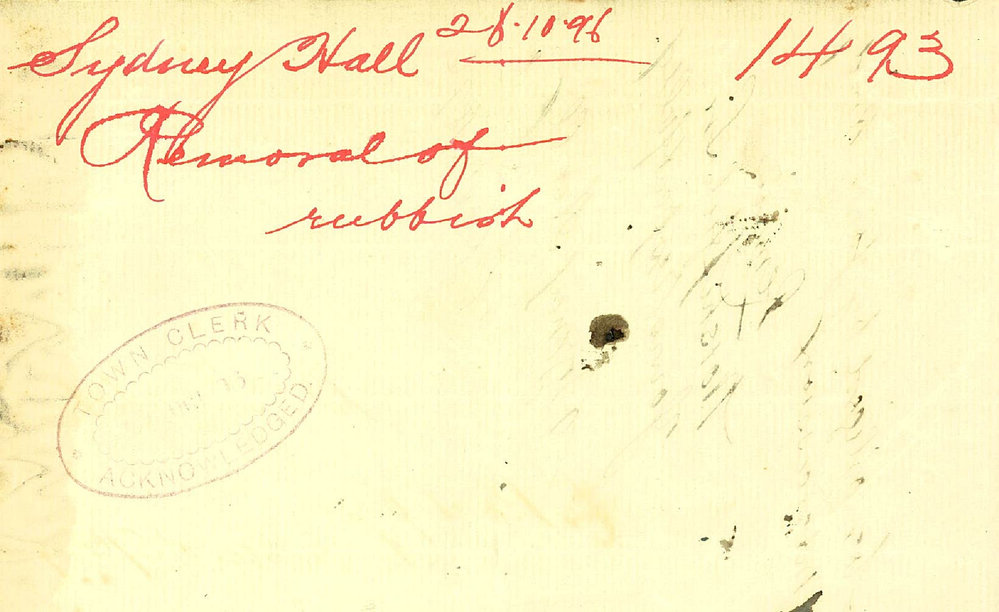 Sydney Hall 28.10.96 1493
Removal of
rubbish
TOWN CLERK
ACKNOWLEDGED.